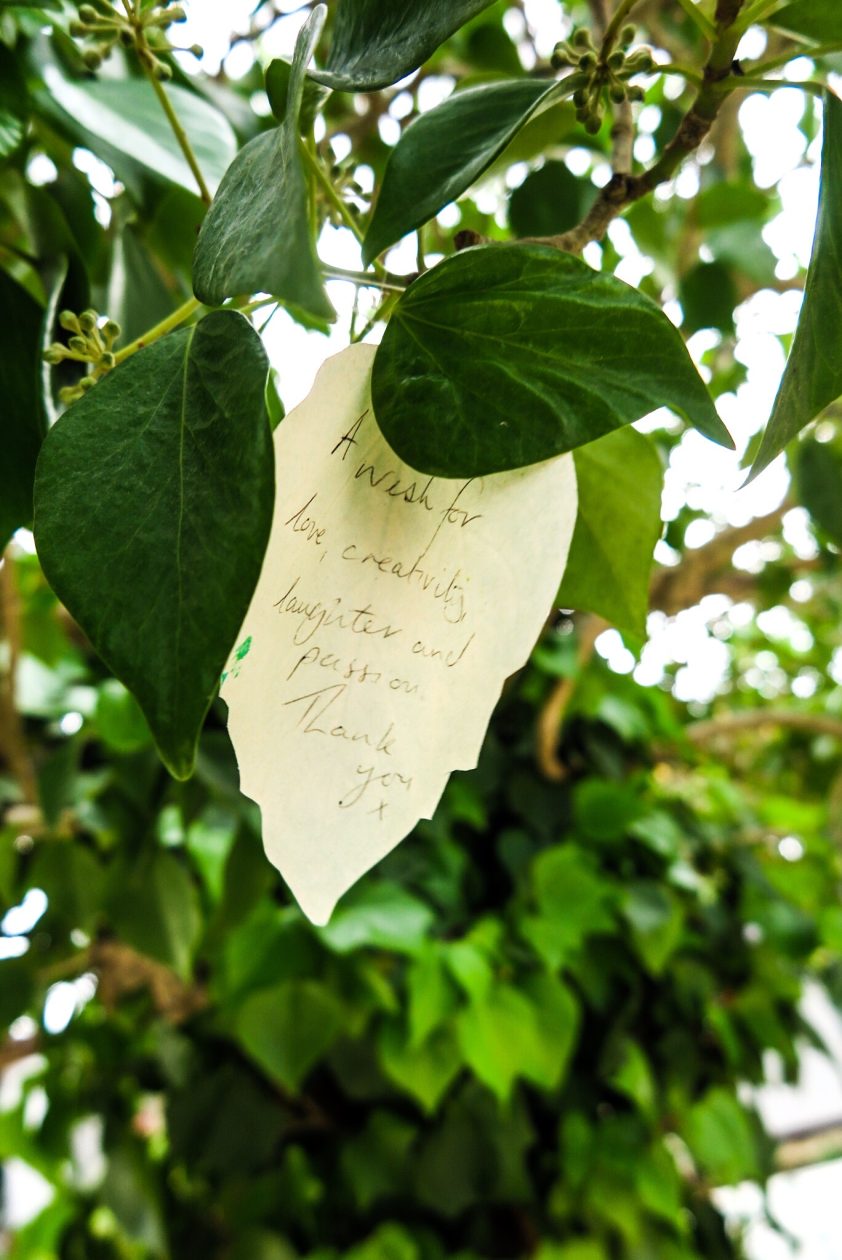 A
wish for
love, creativity,
laughter and
passion.
Thank
you
x